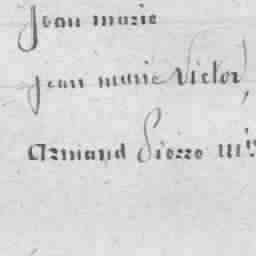 Jean marie
jean marie Victor
Armand Pierre